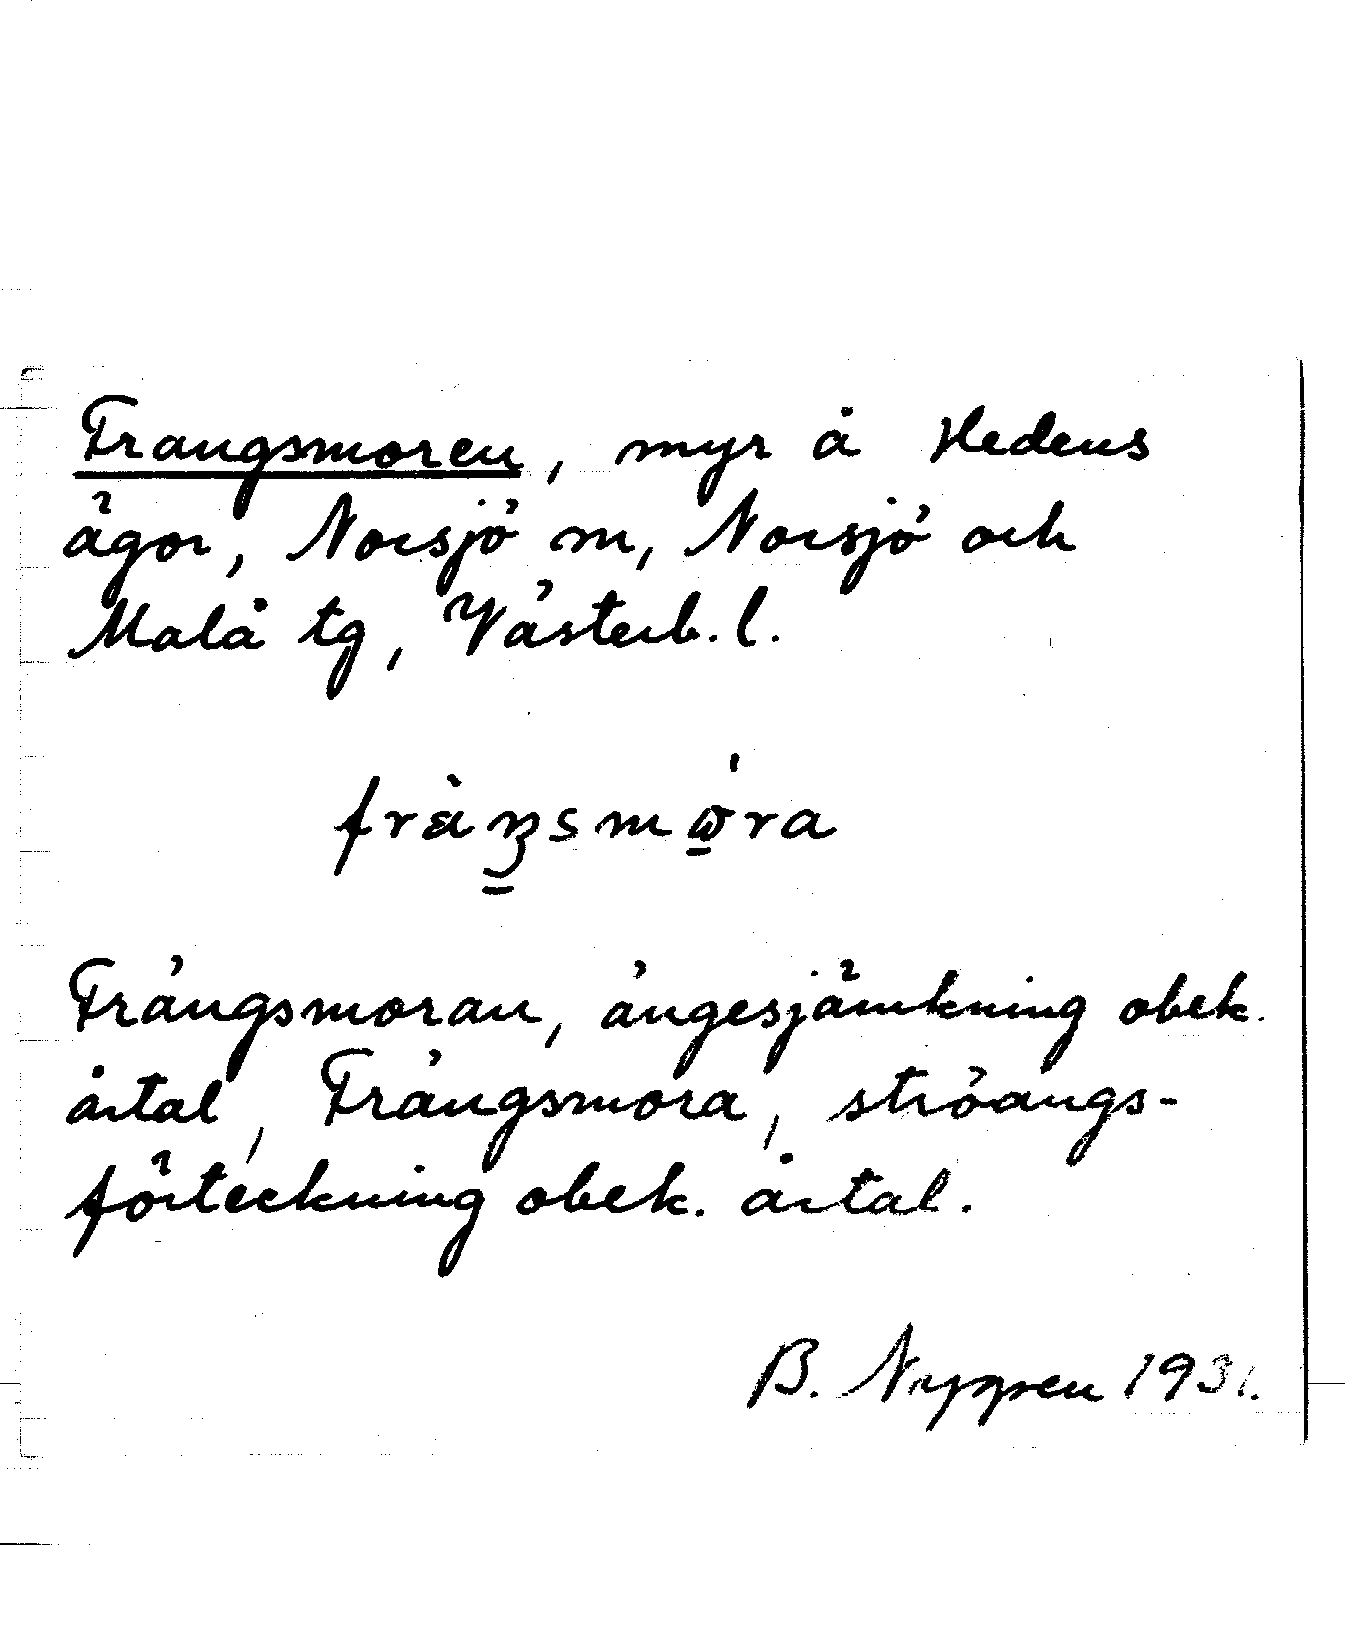 Frangsmoren, myr å Hedens
ägor, Norsjö sn, Norsjö och
Malå tg, Västerb. l.
Frängsmoran, ängesjämkning obek.
årtal, Frängsmora, ströängs-
förteckning obek. årtal.
B. Nygren 1931.